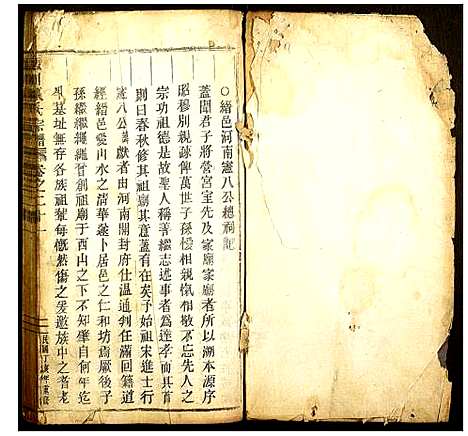 ○縉邑河南憲八公總祠記
蓋聞君子將營宮室先及家廟家廟者所以溯本源序
昭穆別親疎俾萬世子孫優相親愾相敬不忘先人之
宗功祖德是故聖人稱善繼志述事者為達孝而其首
則曰春秋修其祖廟其意蓋有在矣予始祖宋進士行
憲八公諱獻者由河南開封府仕溫通判任滿回籍道
經縉邑愛山水之清華遂卜居邑之仁和坊嵩厥後子
孫繼繼繩繩皆創祖廟于西山之下不知肇自何年迄
今基址無存各族祖輩每慨然傷之爰邀族中之耆老
氏宗譜 卷之二十一
民國丁亥年重修